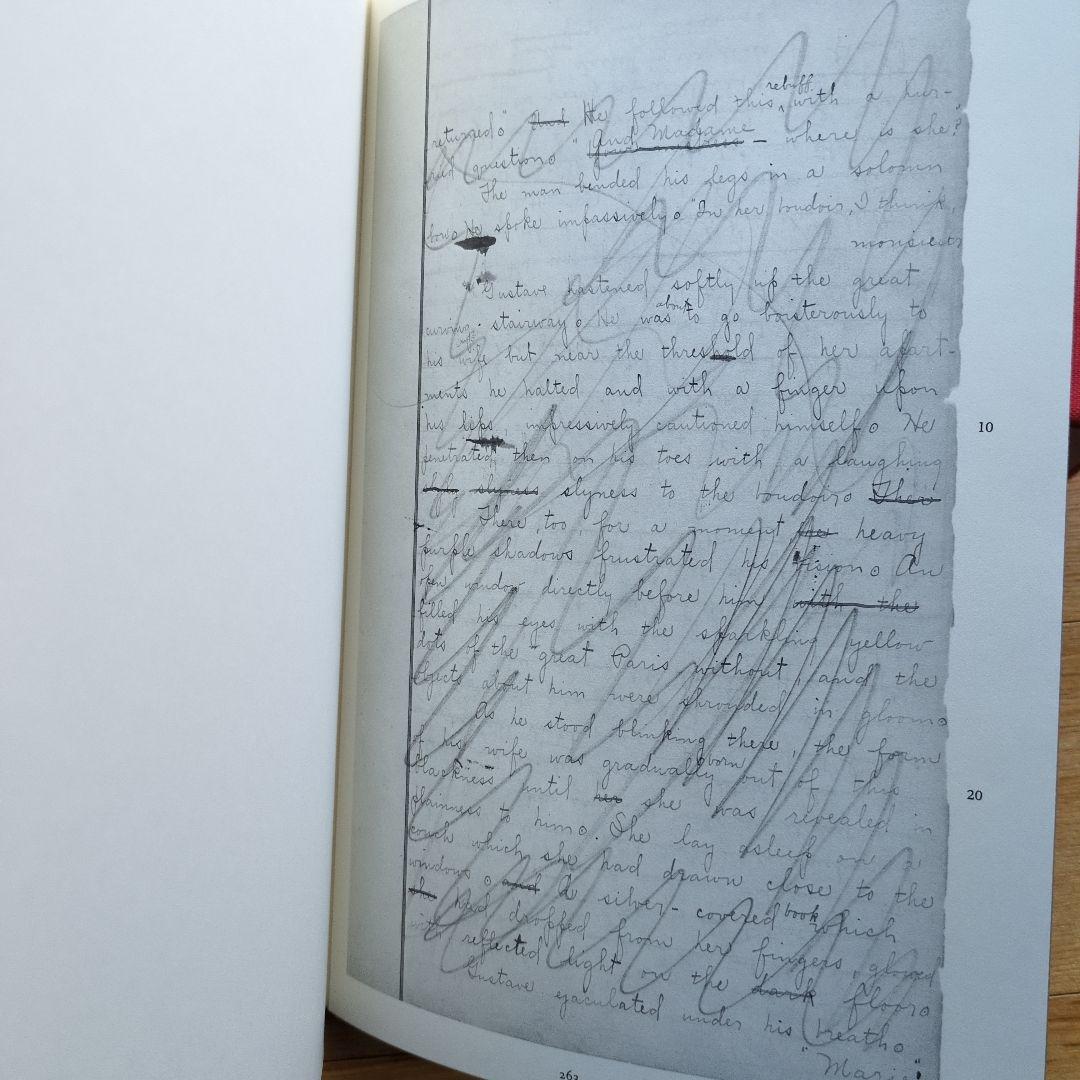 rebuff
returned." And He followed this ‸ with a hur-
ried question. "And Madame — where is she?"
The man bended his legs in a solemn
bow. He spoke impassively. "In her boudoir, I think,
monsieur
Gustave hastened softly up the great
curving stairway. He was about to go boisterously to
his wife but near the threshold of her apart-
ments he halted and with a finger upon
his lips, impressively cautioned himself. He
10
penetrated then on his toes with a laughing
slyness slyness to the boudoir. Then
There too, for a moment the heavy
purple shadows frustrated his vision. An
open window directly before him with the
filled his eyes with the sparkling yellow
dots of the great Paris without, and the
objects about him were shrouded in gloom.
As he stood blinking there, the form
of his wife was gradually born out of this
blackness until her she was revealed in
20
plainness to him. She lay asleep on a
couch which she had drawn close to the
windows. and A silver-covered book which
she had dropped from her fingers, glowed
with reflected light on the dark floor.
Gustave ejaculated under his breath.
"Marie"
263